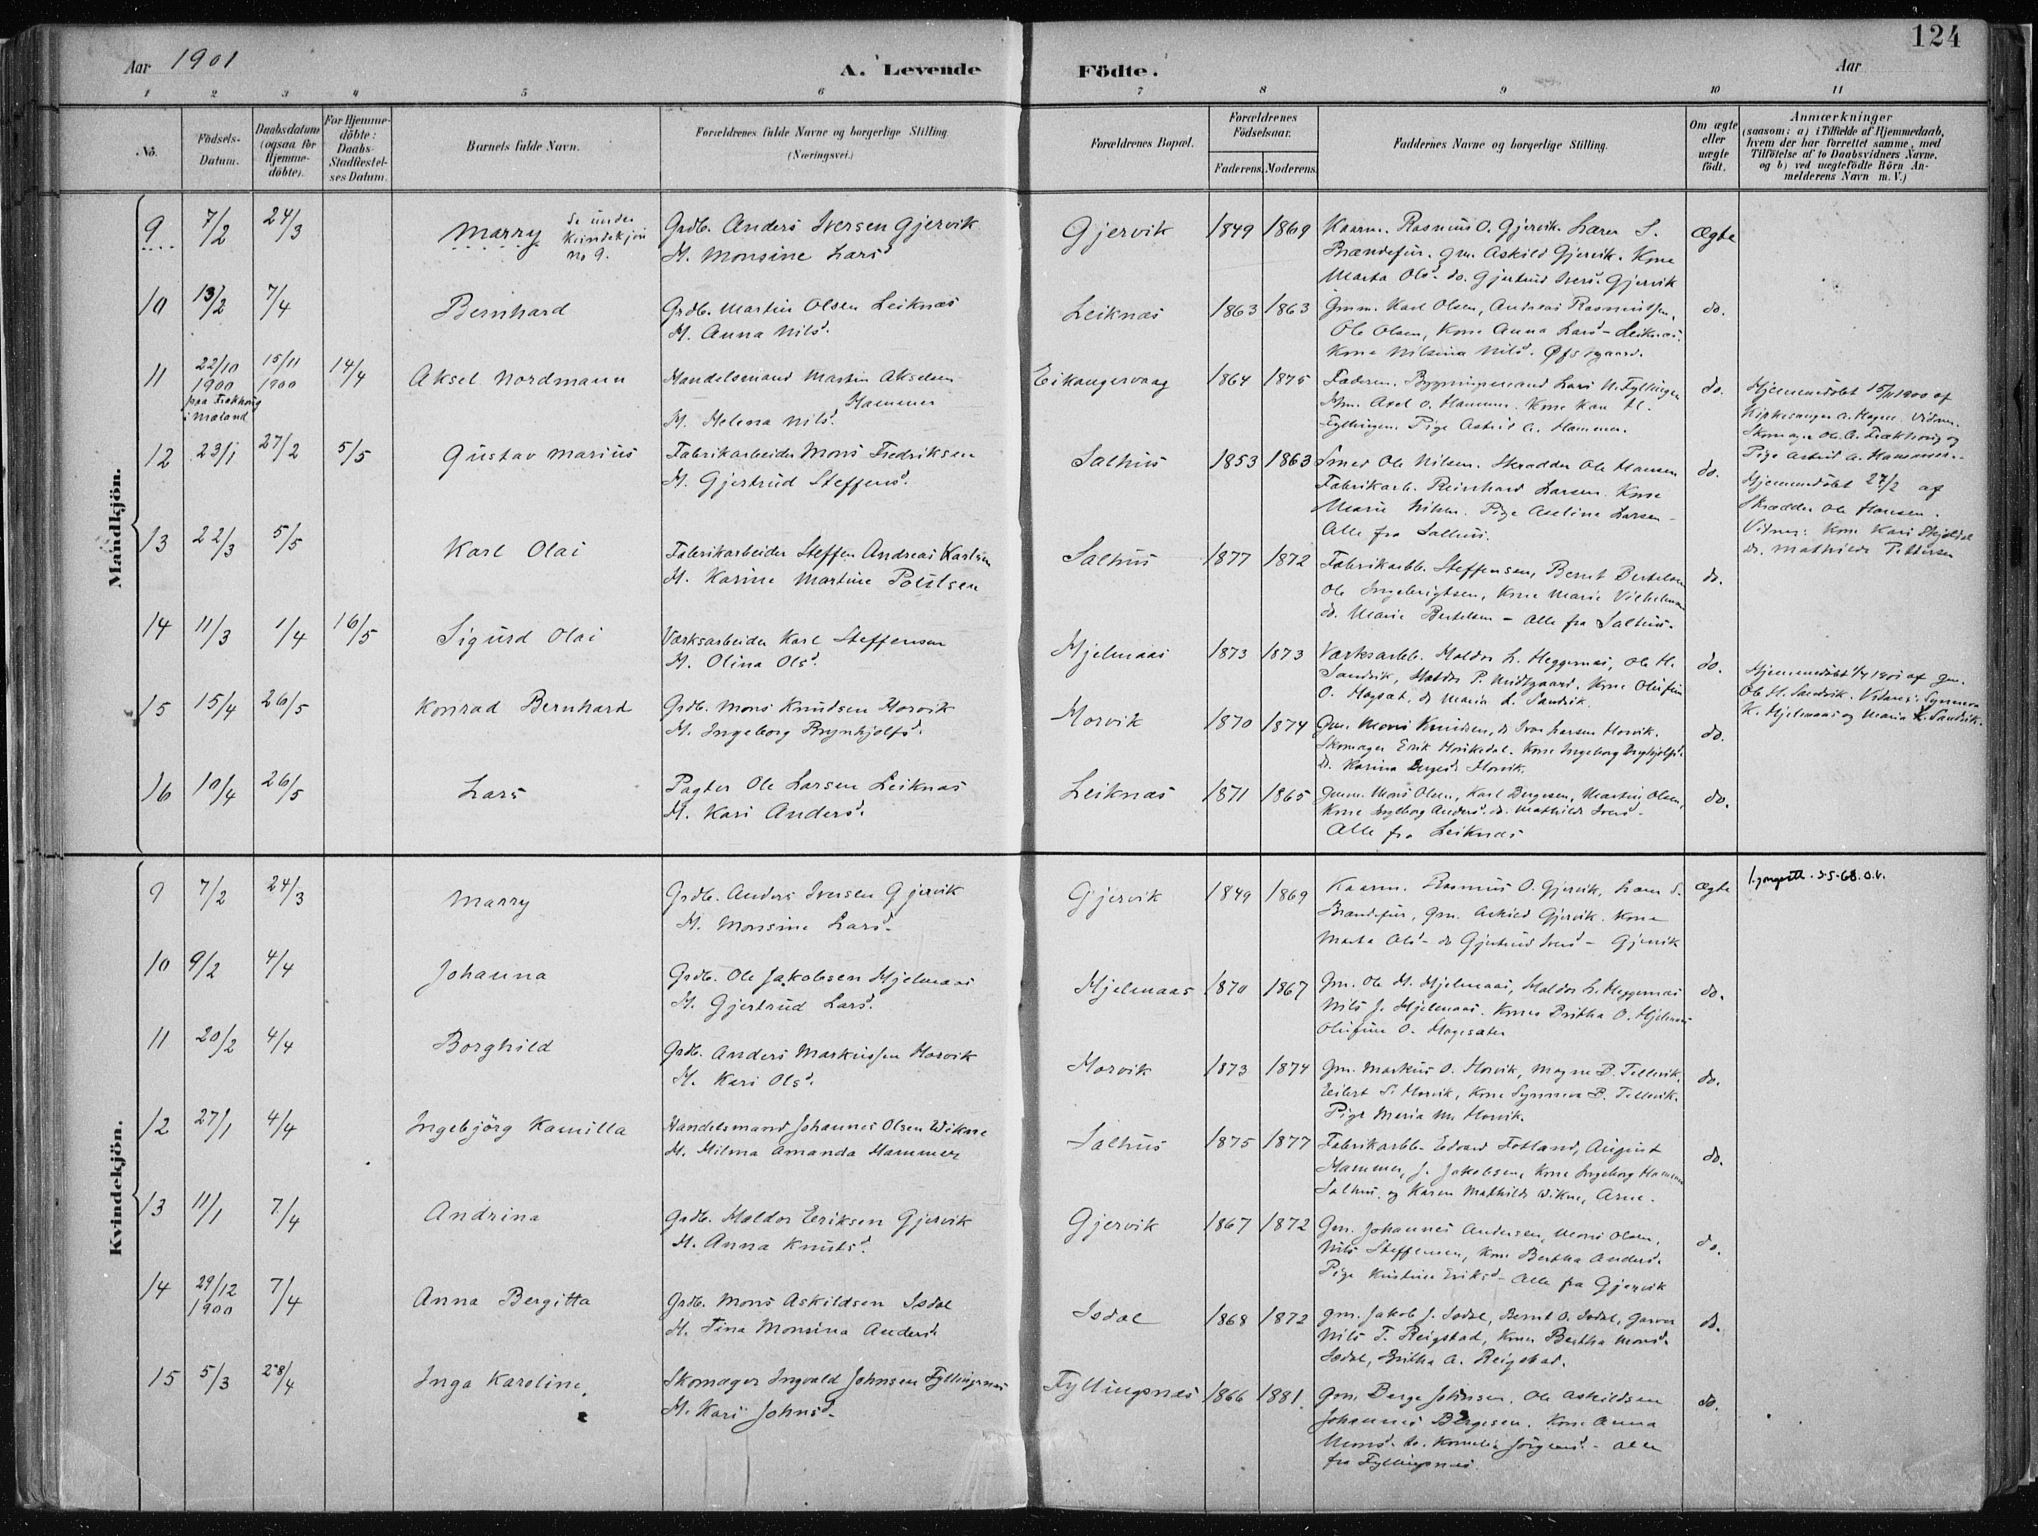 124
Aar 1901
A. Levende Födte.
Aar
1 2 3 4 5 6 7 8 9 10 11
No.
Födsels-Datum.
Daabsdatum (ogsaa for Hjemme-döbte).
For Hjemme-döbte: Daabs-Stadfæstel-ses Datum.
Barnets fulde Navn.
Forældrenes fulde Navne og borgerlige Stilling.
(Næringsvei.)
Forældrenes Bopæl.
Forældrenes Födselsaar.
Faderens. Moderens.
Faddernes Navne og borgerlige Stilling.
Om ægte eller uægte födt.
Anmærkninger
(saasom: a) i Tilfælde af Hjemmedaab,
hvem der har forrettet samme, med
Tilföielse af to Daabsvidners Navne,
og b) ved uægtefödte Börn An-
melderens Navn m. V.)
Mandkjön.
9 7/2 24/3 Marry Se under Kvindekjön No 9. Grdb. Anders Iversen Gjervik
H. Monsine Larsd. Gjervik 1849 1869 Kaarm. Rasmus O. Gjervik. Lærer S.
Brændefur. Gm. Askild Gjervik. Kone
Marta Olsd. do. Gjertrud Iversd. Gjervik ægte
10 13/2 7/4 Bernhard Grdb. Martin Olsen Leiknæs
H. Anna Nilsd. Leiknæs 1863 1863 Gmm. Karl Olsen, Andreas Rasmussen,
Ole Olsen, Kone Anna Larsd. Leiknæs.
Kone Nilsina Nilsd. Øfstgaard. do.
11 22/10 1900 15/11 1900 14/4 Aksel Nordmann Handelsmand Martin Akselsen
Hammer
H. Helena Nilsd. Eikangervaag 1864 1875 Faderen. Bygningsmand Lars N. Fyllingen
Hm. Axel O. Hammer. Kone Kari H.
Fyllingen. Pige Astrid A. Hammer. do. Hjemmedöbt 15/11 1900 af
Kirkesanger A. Hagen. Vidner:
Pige Astrid A. Hammer.
12 23/1 27/2 5/5 Gustav Marius Fabrikarbeider Mons Fredriksen
H. Gjertrud Steffensd. Salhus 1853 1863 Smed Ole Nilsen. Skrædder Ole Hansen
Fabrikarb. Reinhard Larsen. Kone
Marie Nilsen. Pige Aseline Larsen
Alle fra Salhus. do. Hjemmedöbt 27/2 af
Skrædder Ole Hansen.
Vidner: Kone Kari Skjeldal
do. Mathilde Pettersen
13 22/3 5/5 Karl Olai Fabrikarbeider Steffen Andreas Karlsen
H. Karine Martine Poulsen Salhus 1877 1872 Fabrikarb. Steffensen, Bernt Bertelsen
Ole Ingebrigtsen, Kone Marie Vilhelmsen
do. Marie Bertelsen - Alle fra Salhus. do.
14 11/3 1/4 16/5 Sigurd Olai Værksarbeider Karl Steffensen
H. Olina Olsd. Hjelmaas 1873 1873 Værksarb. Haldor L. Heggernæs, Ole H.
Sandvik, Haldor P. Midtgaard. Kone Olufine
O. Hagesæt, do Maria L. Sandvik. do. Hjemmedöbt 1/4 1901 af Gm.
Ole H. Sandvik. Vidner: Synneva
K. Hjelmaas og Maria L. Sandvik.
15 15/4 26/5 Konrad Bernhard Grdb. Mons Knudsen Horvik
H. Ingeborg Brynhjolfsd. Horvik 1870 1874 Gm. Mons Knudsen, do Ivar Larsen Horvik.
Skomager Erik Horikedal. Kone Ingeborg Brynhjolfsd.
do. Karina Bergesd Horvik. do.
16 10/4 26/5 Lars Pagter Ole Larsen Leiknæs
H. Kari Andersd. Leiknæs 1871 1865 Gmm. Mons Olsen, Karl Bergesen, Martin Olsen,
Kone Ingeborg Andersd. do. Mathilde Iversd.
Alle fra Leiknæs do.
Kvindekjön.
9 7/2 24/3 Marry Grdb. Anders Iversen Gjervik
H. Monsine Larsd. Gjervik 1849 1869 Kaarm. Rasmus O. Gjervik, Lærer S.
Brændefur, Gm. Askild Gjervik. Kone
Marta Olsd - do Gjertrud Iversd - Gjervik ægte
10 9/2 4/4 Johanna Grdb. Ole Jakobsen Hjelmaas
H. Gjertrud Larsd. Hjelmaas 1870 1867 Gm. Ole M. Hjelmaas, Haldor L. Heggernæs
Nils J. Hjelmaas. Kone Britha O. Hjelmaas
Olufine O. Hagesæter do.
11 20/2 4/4 Borghild Grdb. Anders Markussen Horvik
H. Kari Olsd. Horvik 1873 1874 Gm. Markus O. Horvik, Magne B. Tellevik,
Eilert S. Horvik, Kone Synneva B. Tellevik.
Pige Maria M. Horvik. do.
12 27/1 4/4 Ingebjörg Kamilla Handelsmand Johannes Olsen Wikne
H. Hilma Amanda Hammer Salhus 1875 1877 Fabrikarb. Edvard Fotland, August
Hammer, J. Jakobsen, Kone Ingeborg Hammer
Salhus. og Karen Mathilde Wikne, Arne. do.
13 11/1 7/4 Andrina Grdb. Haldor Eriksen Gjervik
H. Anna Knutsd. Gjervik 1867 1872 Gm. Johannes Andersen, Mons Olsen,
Nils Steffensen, Kone Bertha Andersd.
Pige Kristine Eriksd - Alle fra Gjervik do.
14 29/12 1900 7/4 Anna Bergitta Grdb. Mons Askildsen Isdal
H. Tina Monsina Andersd. Isdal 1868 1872 Gm. Jakob J. Isdal, Bernt O. Isdal, Garver
Nils T. Reigstad, Kone Bertha Monsd.
Isdal, Britha A. Reigstad. do.
15 5/3 28/4 Inga Karoline Skomager Ingvald Johnsen Fyllingsnes
H. Kari Johnsd. Fyllingsnæs 1866 1881 Gm. Berge Johnsen, Ole Askildsen
Johannes Bergesen. Kone Anna
Monsd. do. Kornelia Jörgensd. - Alle
fra Fyllingsnæs. do.